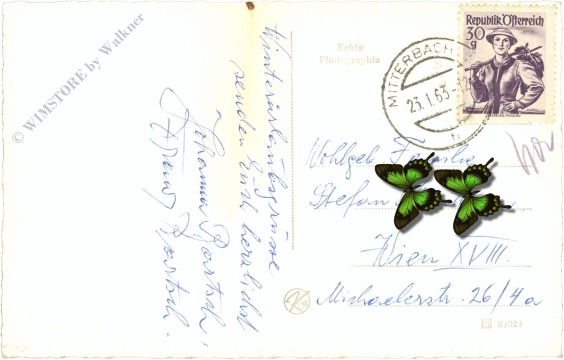 © WIMSTORE by Walkner
Winterurlaubsgrüsse
senden Euch herzlichst
Johanna Bartsch,
Franz Bartsch.
Echte
Photographie
MITTERBACH
23.1.63
b
Republik Österreich
30
g
Wohlgeb. Familie
Stefan
Wien XVIII.
Michaelerstr. 26/4a
83023